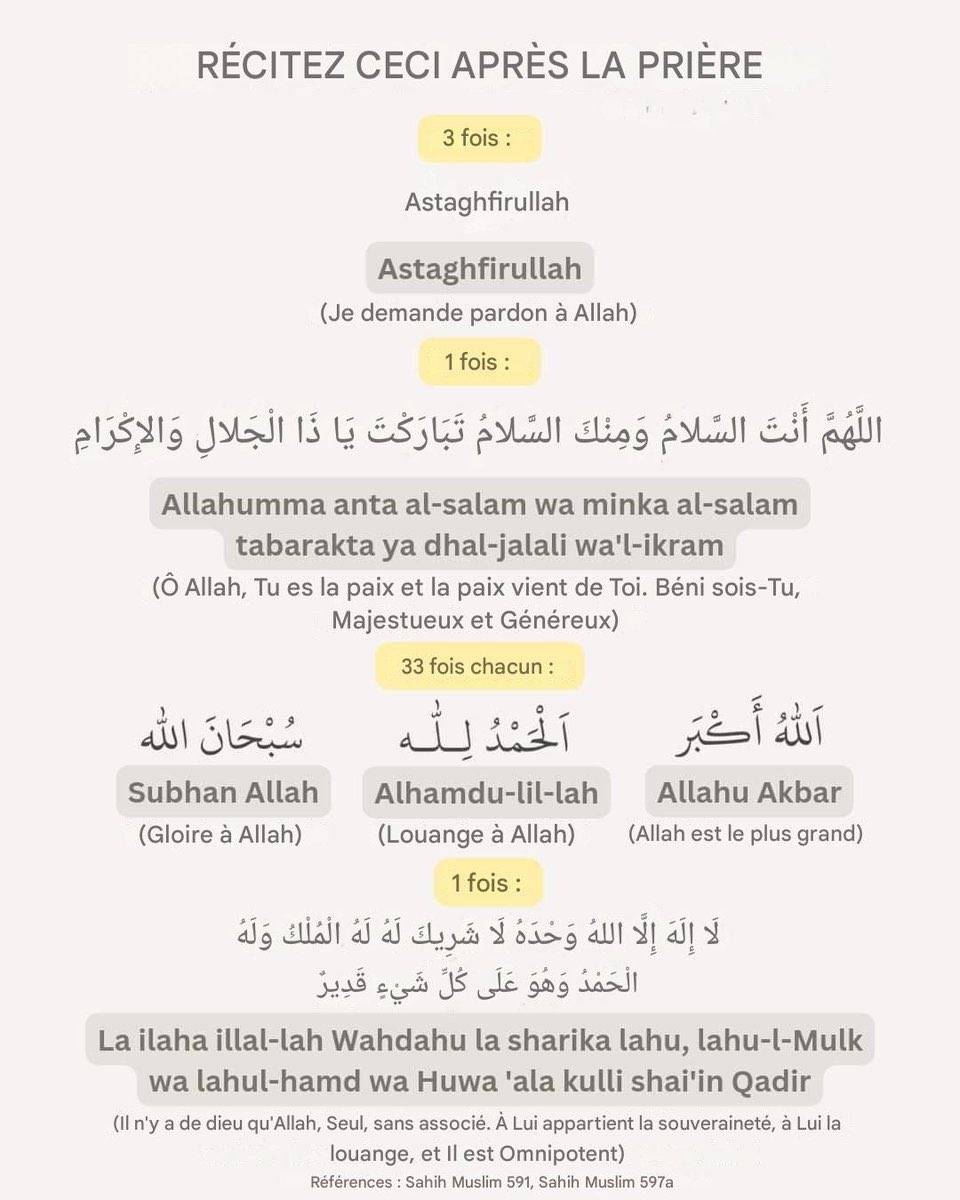 RÉCITEZ CECI APRÈS LA PRIÈRE
3 fois :
Astaghfirullah
Astaghfirullah
(Je demande pardon à Allah)
1 fois :
اللَّهُمَّ أَنْتَ السَّلامُ وَمِنْكَ السَّلامُ تَبَارَكْتَ يَا ذَا الْجَلالِ وَالإِكْرَامِ
Allahumma anta al-salam wa minka al-salam
tabarakta ya dhal-jalali wa'l-ikram
(Ô Allah, Tu es la paix et la paix vient de Toi. Béni sois-Tu,
Majestueux et Généreux)
33 fois chacun :
سُبْحَانَ اللّٰه اَلْحَمْدُ لِلّٰه اَللّٰهُ أَكْبَر
Subhan Allah Alhamdu-lil-lah Allahu Akbar
(Gloire à Allah) (Louange à Allah) (Allah est le plus grand)
1 fois :
لَا إِلَهَ إِلَّا اللهُ وَحْدَهُ لَا شَرِيكَ لَهُ لَهُ الْمُلْكُ وَلَهُ
الْحَمْدُ وَهُوَ عَلَى كُلِّ شَيْءٍ قَدِيرٌ
La ilaha illal-lah Wahdahu la sharika lahu, lahu-l-Mulk
wa lahul-hamd wa Huwa 'ala kulli shai'in Qadir
(Il n'y a de dieu qu'Allah, Seul, sans associé. À Lui appartient la souveraineté, à Lui la
louange, et Il est Omnipotent)
Références : Sahih Muslim 591, Sahih Muslim 597a